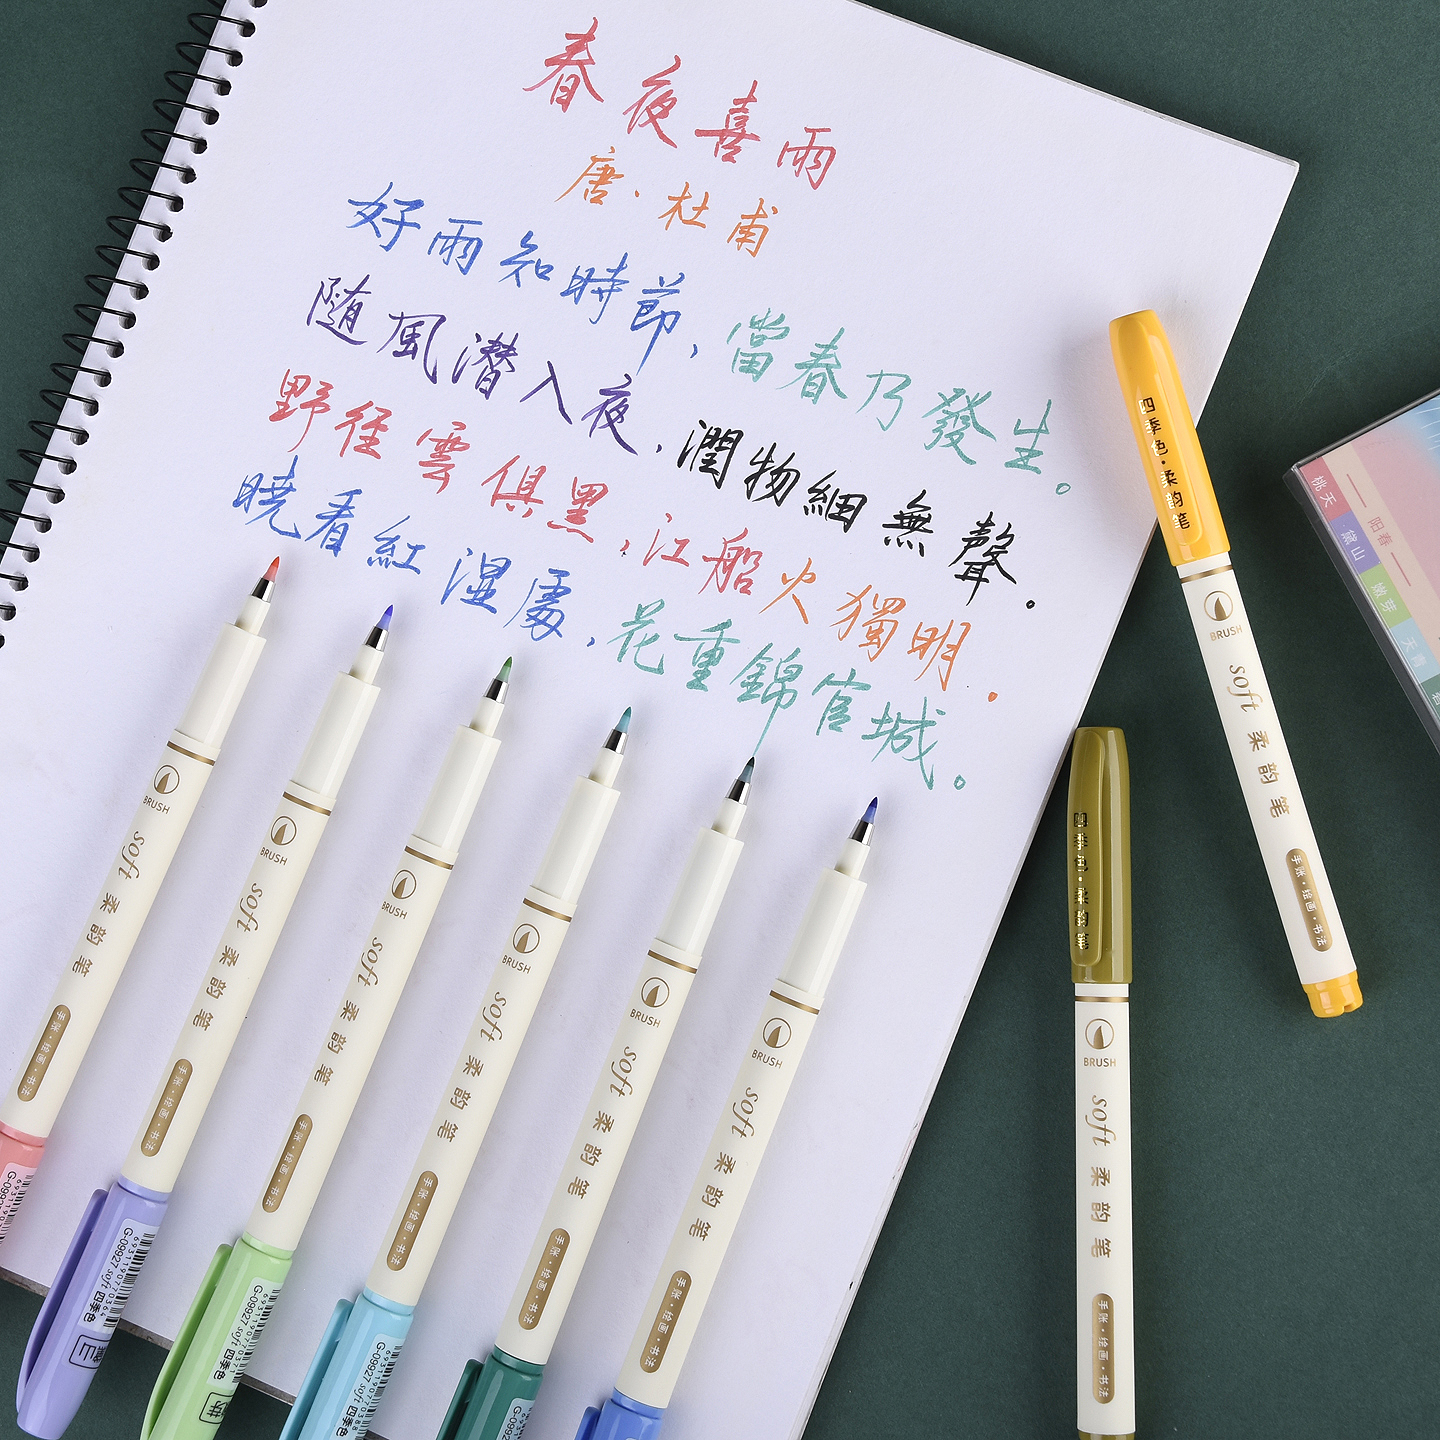 春夜喜雨
唐·杜甫
好雨知時節,當春乃發生。
随風潜入夜,潤物細無聲。
野徑雲俱黑,江船火獨明.
曉看紅湿處,花重錦官城。
四季色·柔韵笔
BRUSH
soft 柔韵笔
手账·绘画·书法
四季色·柔韵笔
BRUSH
soft 柔韵笔
手账·绘画·书法
BRUSH
soft 柔韵笔
手账·绘画·书法
BRUSH
soft 柔韵笔
手账·绘画·书法
G-09927 soft 四季色
6931190770364
BRUSH
soft 柔韵笔
手账·绘画·书法
G-09927 soft 四季色
6931190770371
BRUSH
soft 柔韵笔
手账·绘画·书法
G-09927 soft 四季色
6931190770388
BRUSH
soft 柔韵笔
手账·绘画·书法
BRUSH
soft 柔韵笔
手账·绘画·书法
阳春
黛山
嫩芽
天青